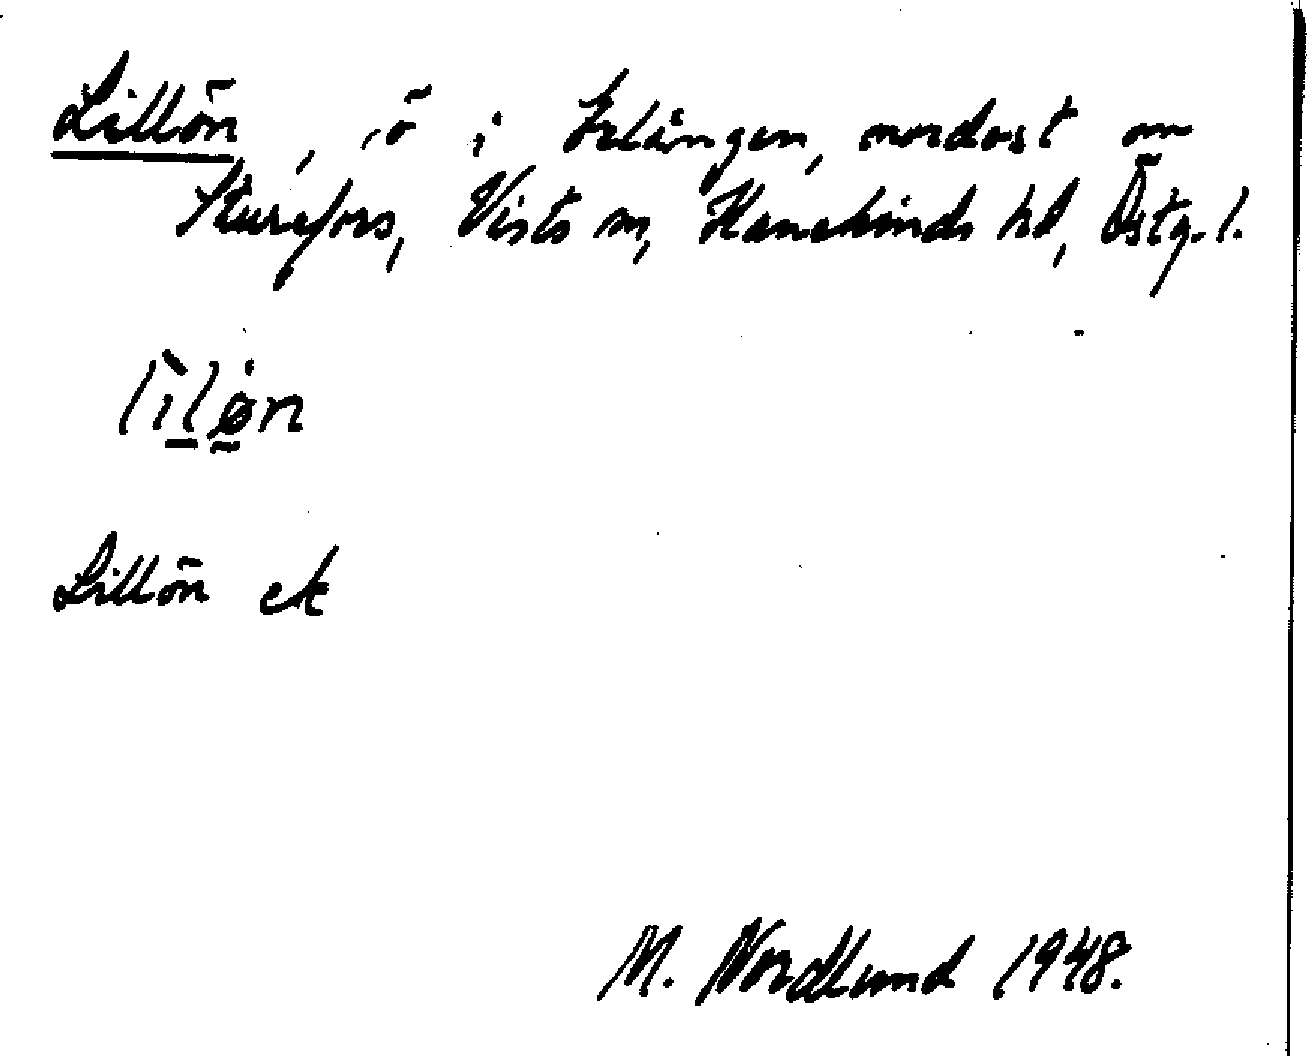 Lillön, ö i Erlången, nordost om
Sturefors, Vists sn, Hanekinds hd, Östg. l.
lìlø̇n
Lillön ek
M. Nordlund 1948.